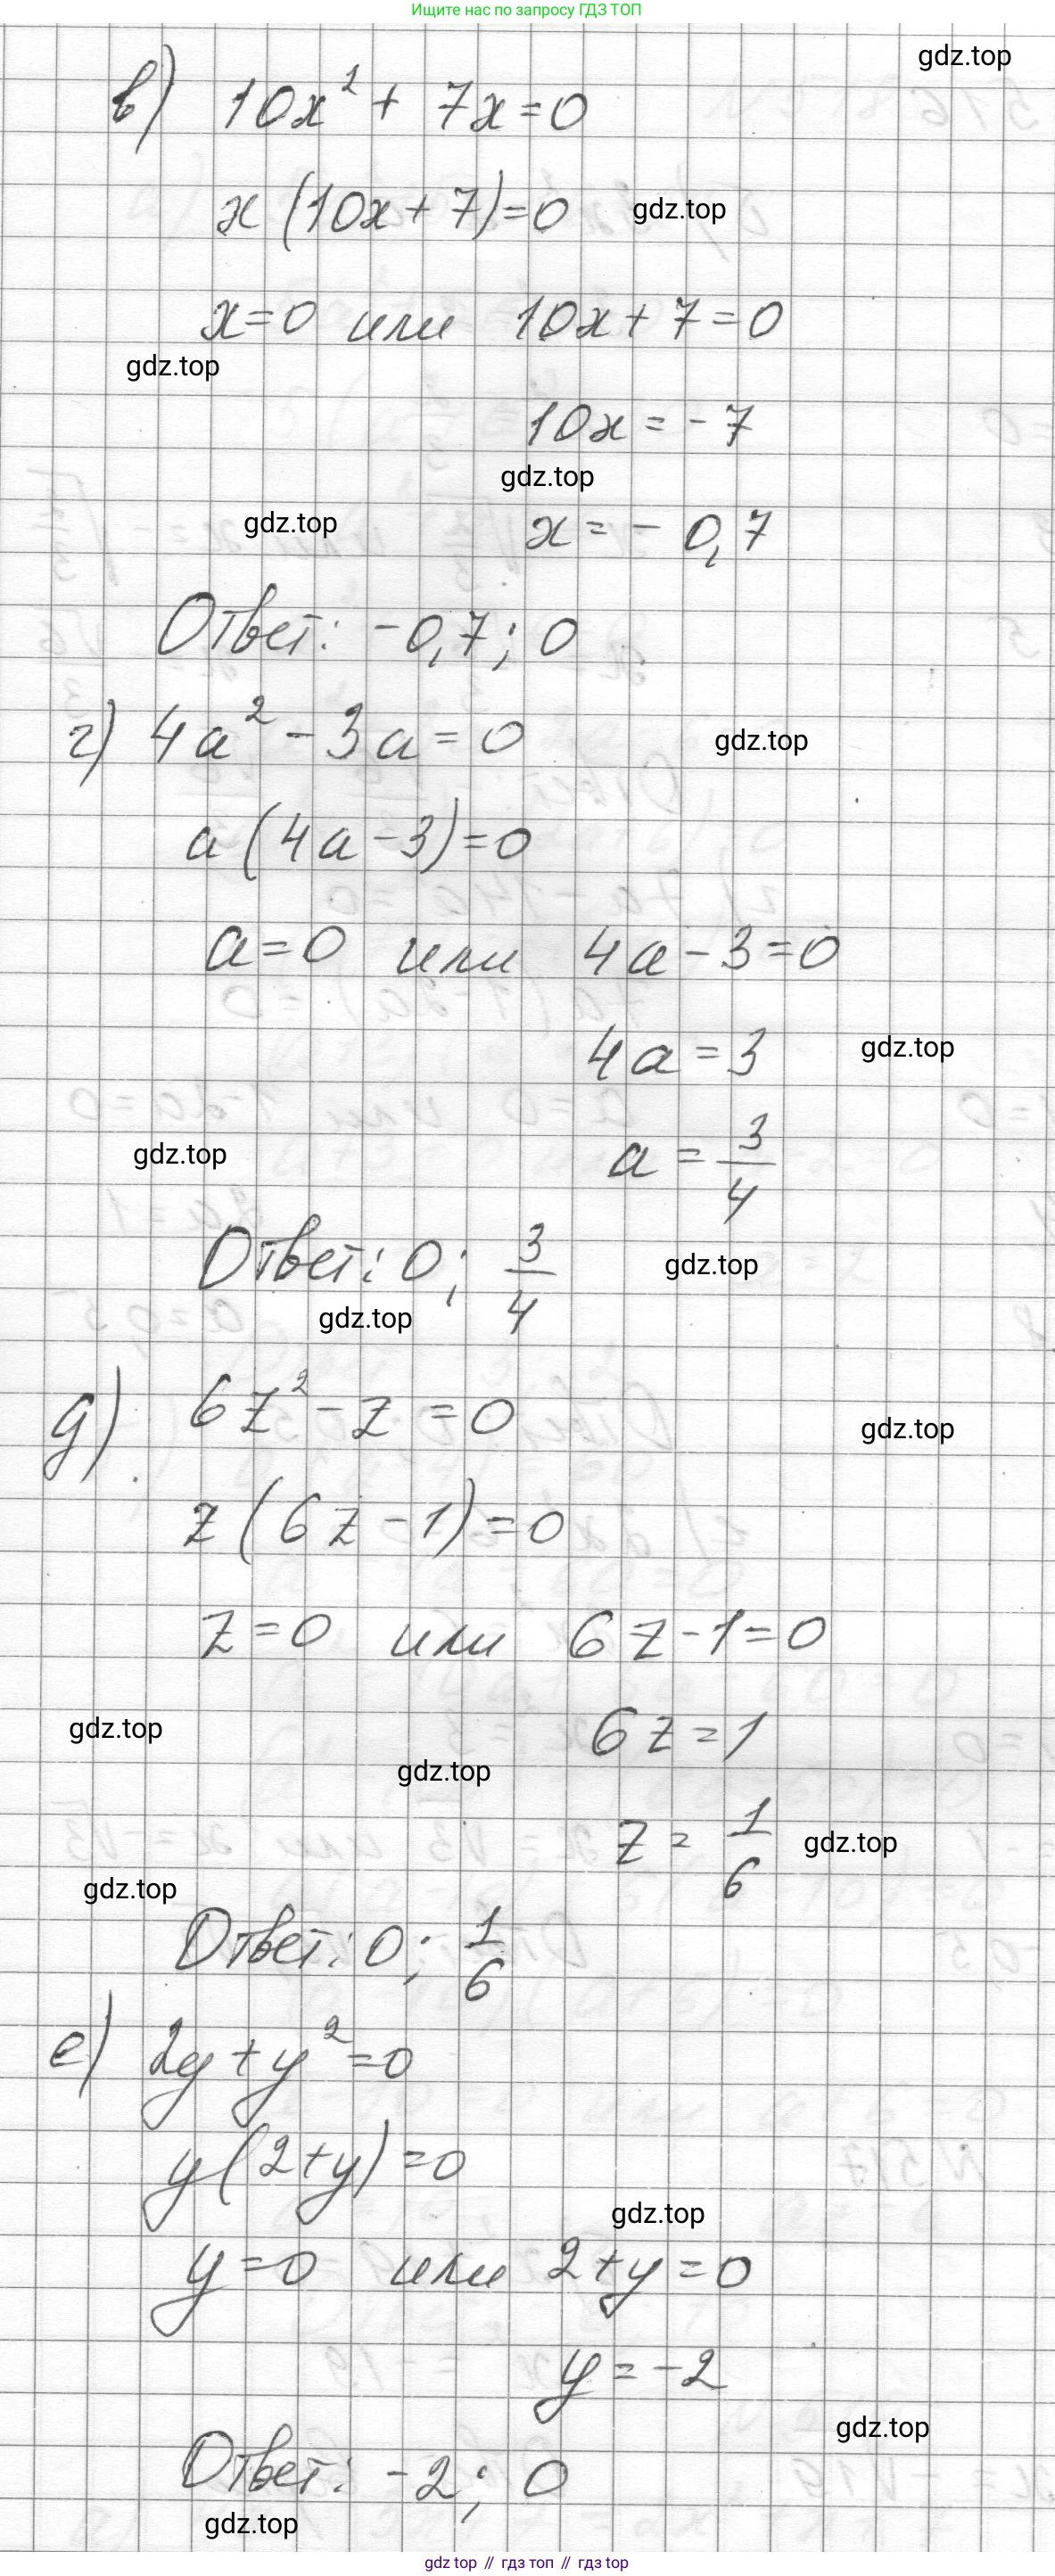 Ищите нас по запросу ГДЗ ТОП
gdz.top
в) 10x² + 7x = 0
x (10x + 7) = 0
gdz.top
x = 0 или 10x + 7 = 0
gdz.top
10x = - 7
gdz.top
gdz.top
x = - 0,7
Ответ: -0,7; 0
г) 4a² - 3a = 0
gdz.top
a (4a - 3) = 0
a = 0 или 4a - 3 = 0
4a = 3
gdz.top
gdz.top
a = 3/4
Ответ: 0; 3/4
gdz.top
gdz.top
д) 6z² - z = 0
gdz.top
z (6z - 1) = 0
z = 0 или 6z - 1 = 0
gdz.top
6z = 1
gdz.top
z = 1/6
gdz.top
gdz.top
Ответ: 0; 1/6
е) 2y + y² = 0
y (2 + y) = 0
gdz.top
y = 0 или 2 + y = 0
y = -2
gdz.top
Ответ: -2; 0
gdz.top
gdz top // гдз топ // gdz.top